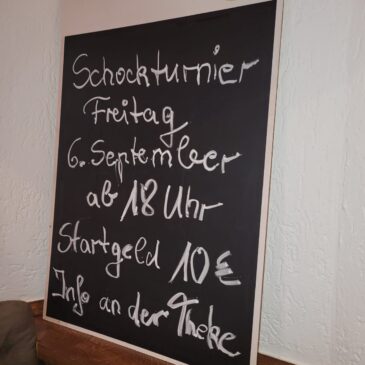 Schockturnier
Freitag
6. September
ab 18 Uhr
Startgeld 10€
Info an der Theke